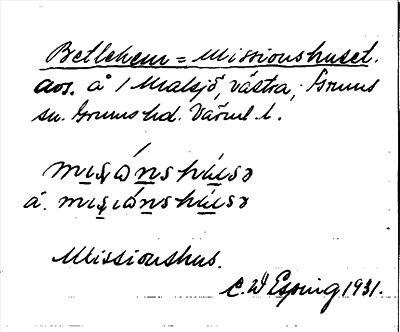 Betlehem = Missionshuset.
avs. å 1 Malsjö, västra, Grums
sn. Grums hd. Värml. l.
miʂɷ̀nshú̵sə
å. miʂiɷ́nshú̵sə
Missionshus.
C. W Esping 1931.